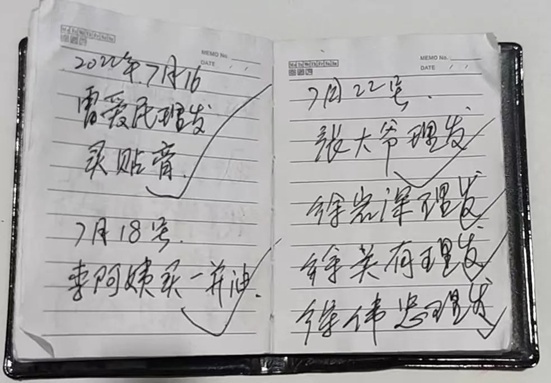 MEMO No.
DATE / /
2022年7月16
雷爱民理发
买贴膏.
7月18号.
李阿姨买一并油.
MEMO No.
DATE / /
7月22号.
张大爷理发
徐岩泽理发
徐英有理发
徐伟忠理发